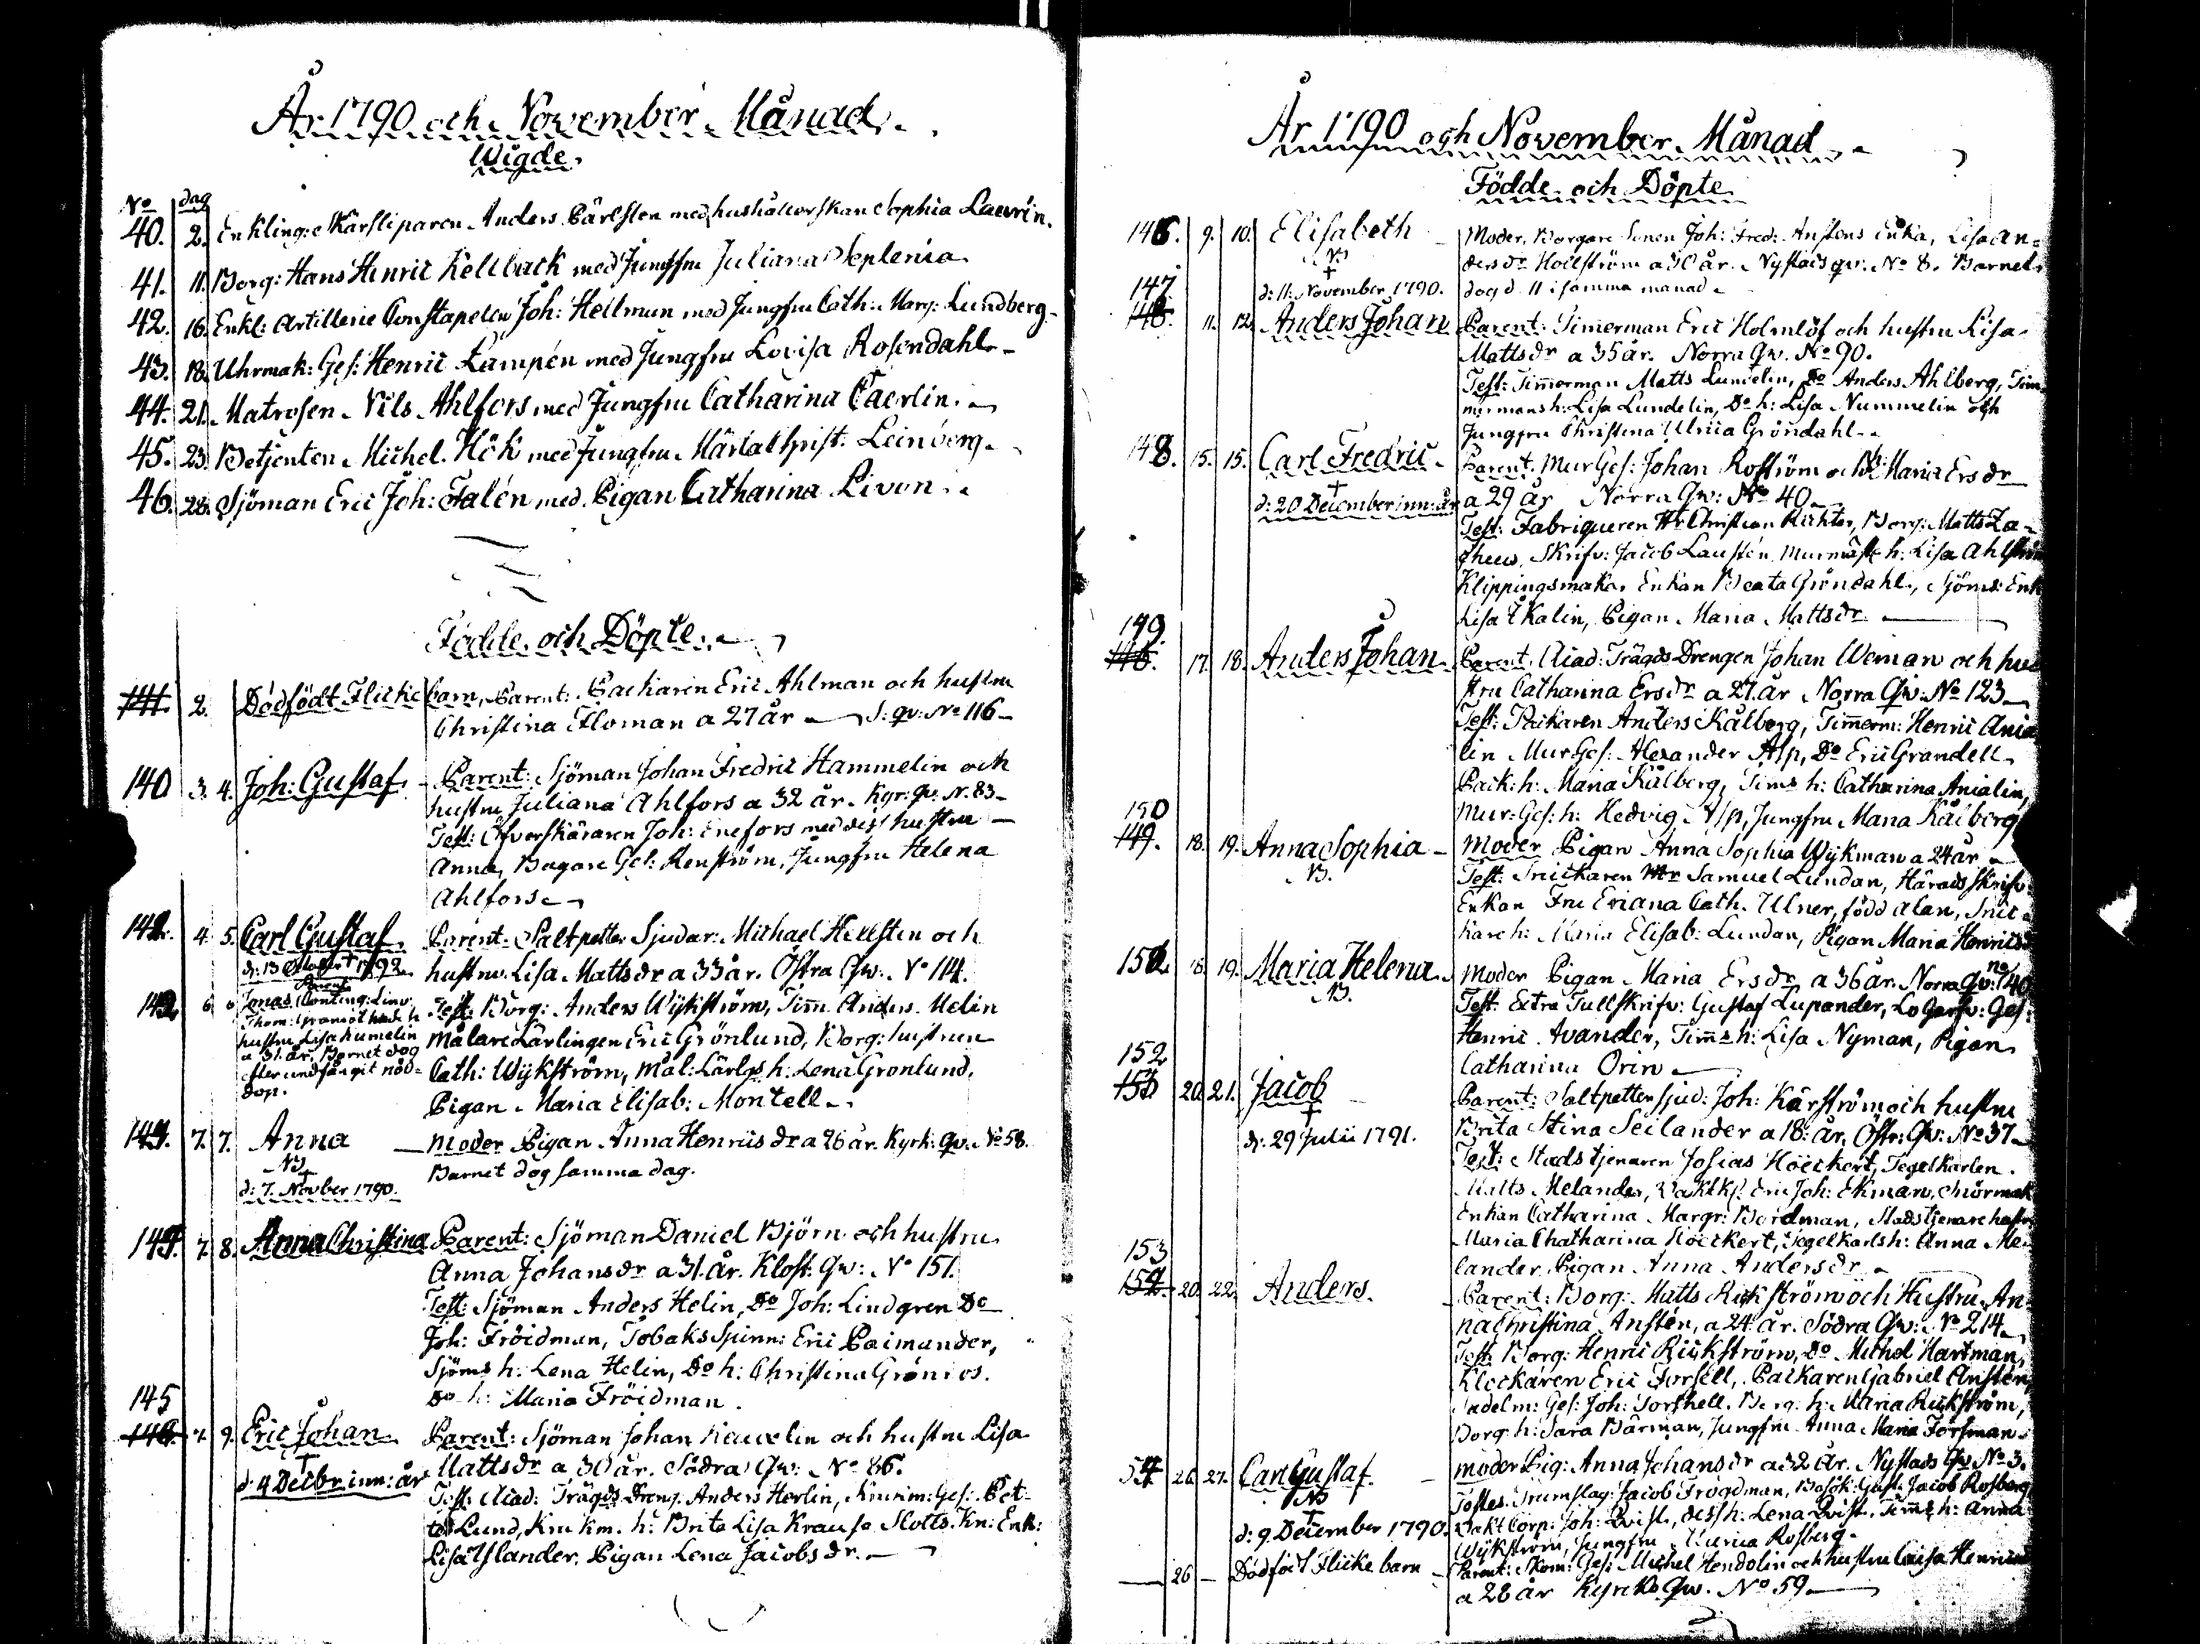 År 1790 och November Månad.
Wigde.
No dag
40. 2. Enkling: Skärsliparen Anders Carlsten med hushållerskan Sophia Laevrin.
41. 11. Borg: Hans Henric Kellback med Jungfru Juliana Seplenia
42. 16. Enkl: Artillerie Constapelen Joh: Hellman med Jungfru Cath: Marg: Lundberg
43. 18. Uhrmak: Ges: Henric Lampén med Jungfru Lovisa Rosendahl
44. 21. Matrosen Nils Ahlfors med Jungfru Catharina Caerlin.
45. 23. Betjenten Michel Hök med Jungfru Märta Christ: Leinberg.
46. 28. Sjöman Eric Joh: Falén med Pigan Catharina Liven.
Födde och Döpte.
2. Dödfödt Flicke barn, Parent: Packaren Eric Ahlman och hustru
Christina Floman a 27 år S: qv: No 116
140 3. 4. Joh: Gustaf Parent: Sjöman Johan Fredric Hammelin och
hustru Juliana Ahlfors a 32 år. Kyr: Qv: N. 83
Test: Öfverskäraren Joh: Enefors med dess hustru
Anna, Bagare Ges: Renström, Jungfru Helena
Ahlfors
4. 5. Carl Gustaf. Parent: Saltpetter Sjudar: Michael Hellsten och
d: 13 1792 hustru Lisa Matts dr a 33 år. Östra Qw: No 114.
6 6 Jonas Parent Test: Borg: Anders Wykström, Tim: Anders Melin
hustru Lisa Humelin Målare Lärlingen Eric Grönlund, Borg: hustrun
a 31. år. Barnet dog
efter undfångit nöd= Cath: Wykström, Mål: Lärlgs h: Lena Grönlund.
dop.
Pigan Maria Elisab: Montell
7. 7. Anna Moder Pigan Anna Henrics dr a 26 år. Kyrk: qv. No 58.
Barnet dog samma dag.
d: 7. Novber 1790.
7. 8. Anna Christina Parent: Sjöman Daniel Björn och hustru
Anna Johans dr a 31. år. Klost: Qw: No 151.
Test: Sjöman Anders Helin, Do Joh: Lindgren Do
Joh: Fröidman, Tobaks Spinn: Eric Paimander,
Sjöms h: Lena Helin, Do h: Christina Grönros.
Do h: Maria Fröidman.
145
7. 9. Eric Johan Parent: Sjöman Johan och hustru Lisa
d: 4 Decbr inn: år Matts dr a 30 år. Södra Qw: No 86.
Test: Acad: Trägds Dreng. Anders Herlin, Ges: Pet=
ter Lund, h: Brita Lisa Krause Slotts. Kn: Enk:
Lisa Islander. Pigan Lena Jacobs dr.
År 1790 och November Månad
Födde och Döpte
146. 9. 10. Elisabeth Moder, Borgare Sonen Joh: Fred: Anstens Enka, Lisa An=
ders dr Hollström a 30 år. Nystads qv: No 8. Barnet
d: 11. November 1790. dog d. 11 i samma månad
147
11. 12. Anders Johan Parent: Timerman Eric Holmlöf och hustru Lisa
Matts dr a 35 år. Norra Qw. No 90.
Test: Timerman Matts Lundelin, Do Anders Ahlberg, Tim
mermans h: Lisa Lundelin, Do h: Lisa Nummelin och
Jungfru Christina Ulrica Gröndahl
148. 15. 15. Carl Fredric Parent: Mur Ges: Johan Roström och h: Maria Ers dr
d: 20 December inn: år a 29 år Norra Qw: No 40
Test: Fabriqueren Hr Christian Richter, Borg: Matts Za=
cheus, Skrifv: Jacob Laustén, Murmäst: h: Lisa Ahlström
Klippingsmakar Enkan Beata Gröndahl, Sjöms Enk
Lisa Ekalin, Pigan Maria Matts dr
149.
17. 18. Anders Johan Parent: Acad: Trägds Drengen Johan Weman och hu
stru Catharina Ers dr a 27 år Norra Qw: No 123
Test: Packaren Anders Kålberg, Timerm: Henric Ania
lin Mur Ges: Alexander Alp, Do Eric Grandell
Pack: h: Maria Kålberg, Tims h: Catharina Anialin,
150 Mur: Ges: h: Hedvig Alp, Jungfru Maria Kålberg
18. 19. Anna Sophia Moder Pigan Anna Sophia Wykman a 24 år
Test: Snickaren Mr Samuel Lundan, Härads Skrifv:
Enkan Fru Eriana Cath. Ulner, född Alan, Snic
kare h: Maria Elisab: Lundan, Pigan Maria Henrics
18. 19. Maria Helena Moder Pigan Maria Ers dr a 36 år. Norra Qv: no 140
Test: Extra Tullskrifv: Gustaf Lupander, Lo Garfv: Ges:
Henric Avander, Tims h: Lisa Nyman, Pigan
152 Catharina Orin
20. 21. Jacob Parent: Saltpetter sjud: Joh: Kärström och hustru
d: 29 Julii 1791. Brita Stina Seilander a 18: år. Östr: Qw: No 37
Test: Stads tjenaren Josias Höeckert, Tegelkarlen
Matts Melander, Eric Joh: Ekman, Snörmak
Enkan Catharina Margr: Bordman, Stads tjenare hustr
Maria Chatharina Höeckert, Tegelkarls h: Anna Me=
153 lander Pigan Anna Anders dr
20. 22. Anders Parent: Borg: Matts Rickström och Hustru An
na Christina Anstén, a 24 år. Södra Qw: No 214
Test: Borg: Henric Rickström, Do Michel Hartman,
Klockaren Eric Forsell, Packaren Gabriel Anstén,
Sadelm: Ges: Joh: Torskell. Borg: h: Maria Rickström,
Borg: h: Sara Bärman, Jungfru Anna Maria Forsman
54 26. 27. Carl Gustaf Moder Pig: Anna Johans dr a 32 år. Nystads Qw No 3.
Testes. Trumslag: Jacob Frogdman, Besök: Gust: Jacob Rosberg
d: 9. December 1790. Wakt Corp: Joh: Qvist, dess h: Lena Qvist, Timms h: Anna
Wykström, Jungfru Maria Rosberg
26 Dödfödt Flicke barn Parent: Skom: Ges: Michel Hendolin och hustru Caisa Henrics
a 28 år Kyrko Qw. No 59